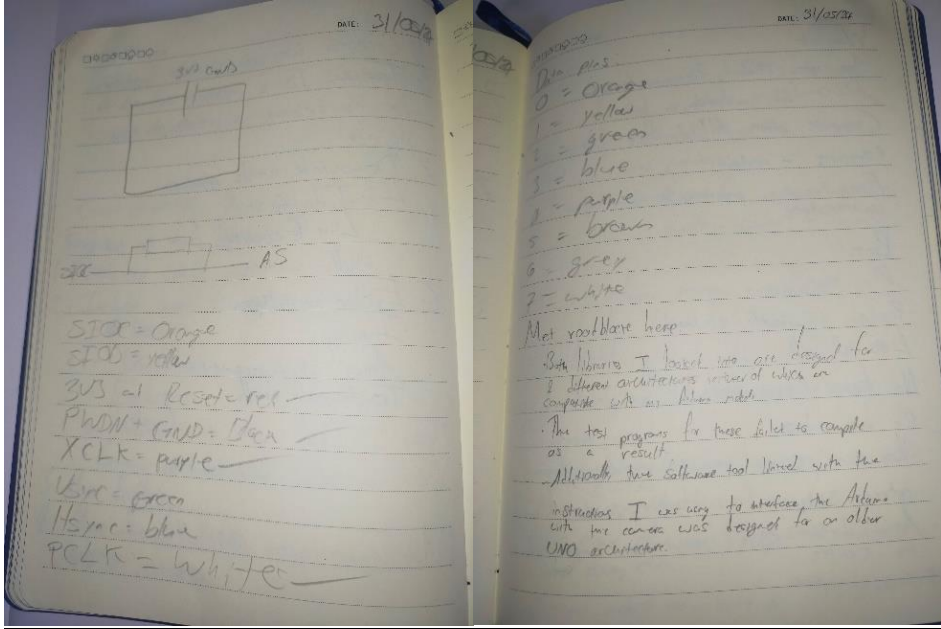 DATE: 31/05/24
3v3 GND
A5
SIOC = Orange
SIOD = yellow
3V3 and Reset = red
PWDN + GND = Black
XCLK = purple
Vsync = Green
Hsync = blue
PCLK = White
DATE: 31/05/24
Data pins
0 = Orange
1 = yellow
2 = green
3 = blue
4 = purple
5 = brown
6 = grey
7 = white
Met roadblock here
Both libraries I looked into are designed for
2 different architectures of which
compatible with my Arduino
The test programs for these failed to compile
as a result
Additionally the software tool linked with the
instructions I was using to interface the Arduino
with the camera was designed for an older
UNO architecture.